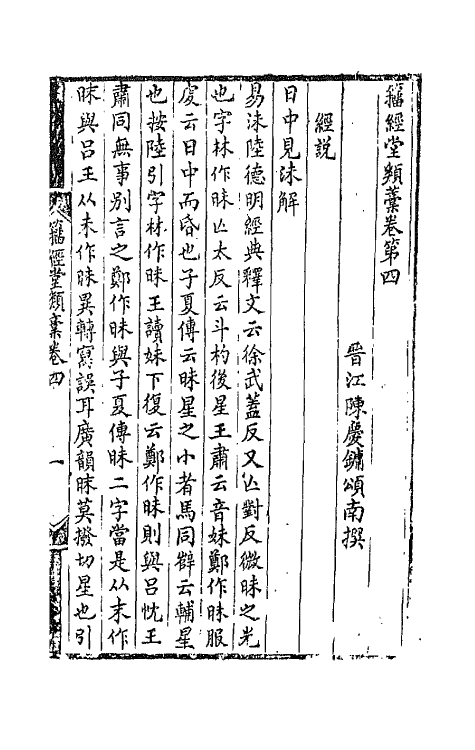 籀經堂類藁卷第四
晉江陳慶鏞頌南撰
經説
日中見沬解
易沬陸德明經典釋文云徐武蓋反又亾對反微昧之光
也字林作昧亾太反云斗杓後星王肅云音妹鄭作昧服
虔云日中而昏也子夏傳云昧星之小者馬同薛云輔星
也按陸引字林作昧王讀妹下復云鄭作昧則與呂忱王
肅同無事别言之鄭作昧與子夏傳昧二字當是从末作
昩與呂王从未作昧異轉寫誤耳廣韻昩莫撥切星也引
籀經堂類藁卷四
一